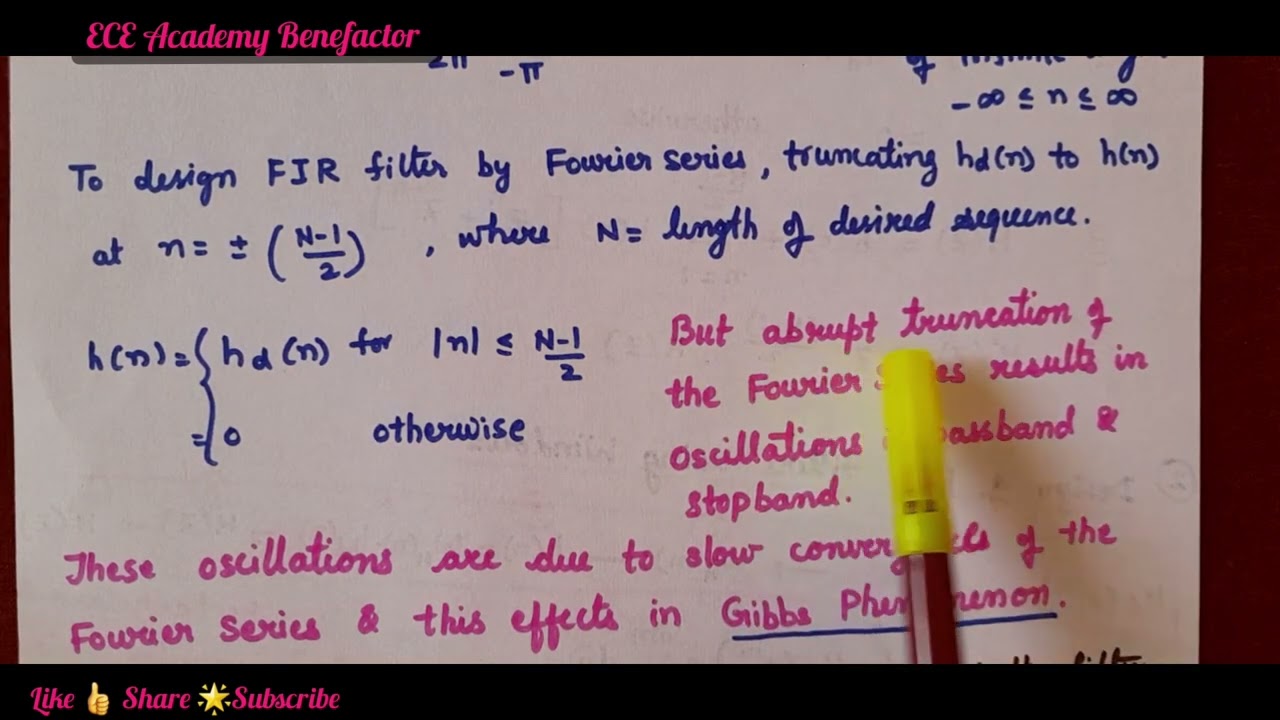 ECE Academy Benefactor
2π -π of
-∞ ≤ n ≤ ∞
To design FIR filter by Fourier series, truncating hd(n) to h(n)
at n = ± (N-1/2) , where N = length of desired sequence.
h(n) = { hd(n) for |n| ≤ N-1/2
= 0 otherwise
But abrupt truncation of
the Fourier results in
oscillations passband &
stopband.
These oscillations are due to slow of the
Fourier series & this effects in Gibbs
Like 👍 Share 🌟Subscribe